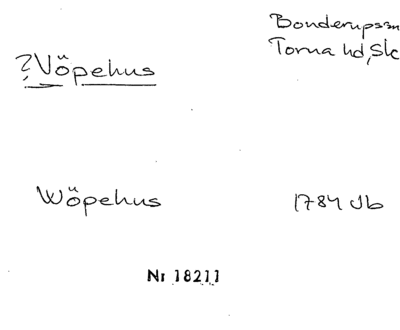 Bonderupssn
Torna hd, Sk
?Vöpehus
Wöpehus 1784 Jb
Nr 18211